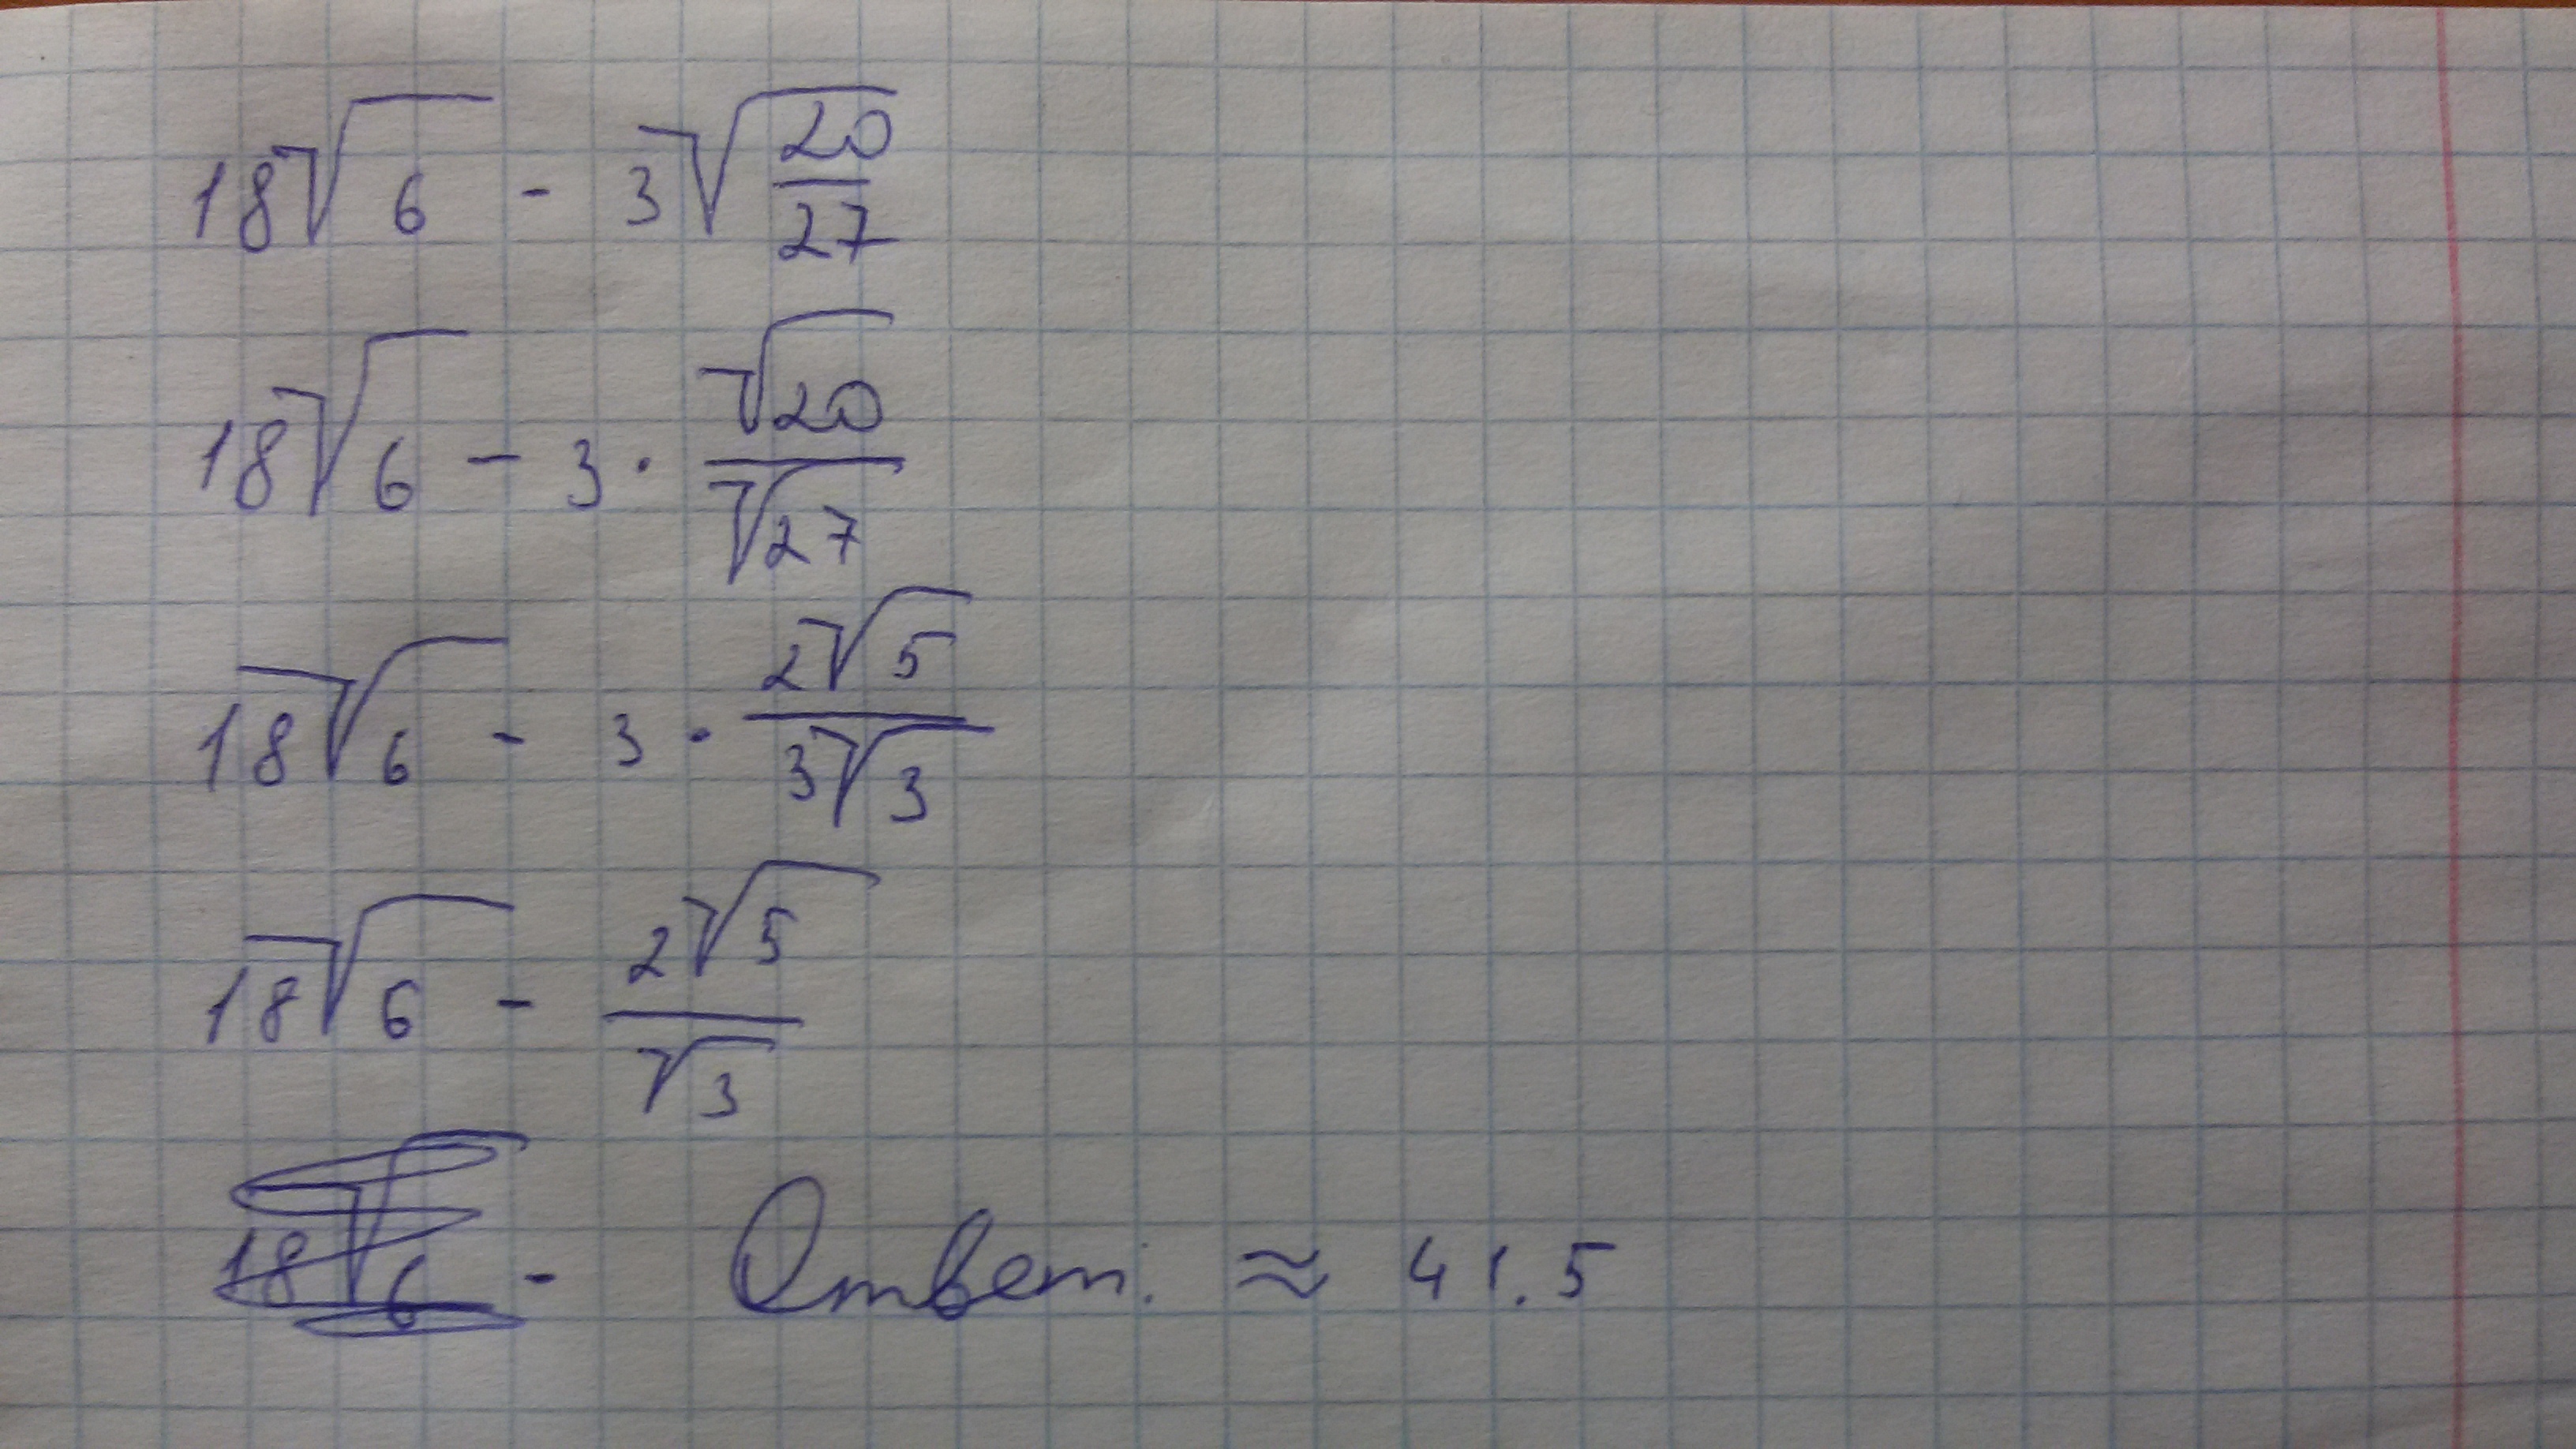 18√6 - 3√(20/27)
18√6 - 3 · √20/√27
18√6 - 3 · 2√5/3√3
18√6 - 2√5/√3
18√6 - Ответ: ≈ 41.5